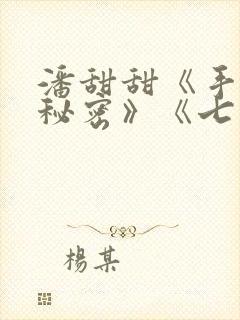 潘甜甜《手
秘密》《七
楊某